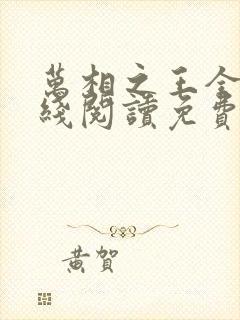 萬相之王全
綫閱讀免費
黃賀